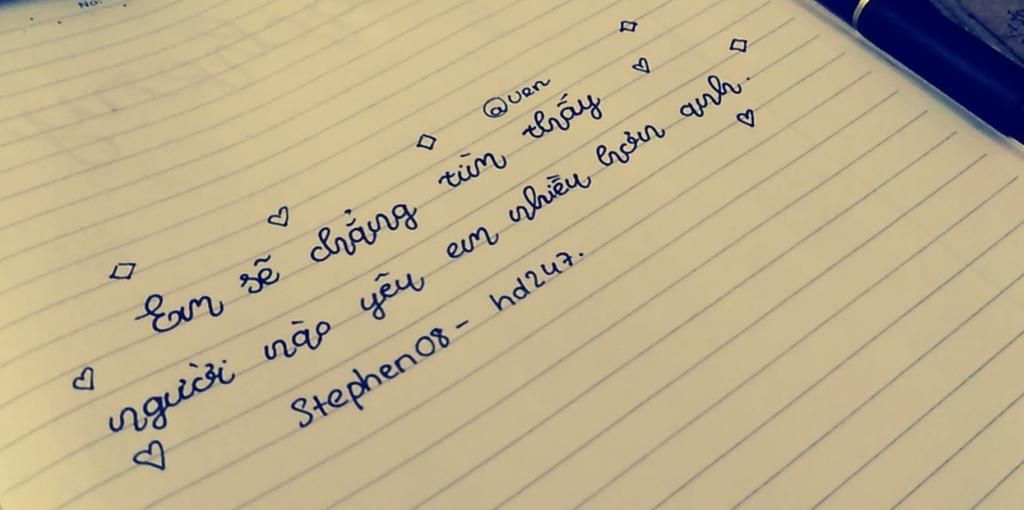 No:
@uen
Em sẽ chẳng tìm thấy
người nào yêu em nhiều hơn anh.
Stephen08 - hd247.